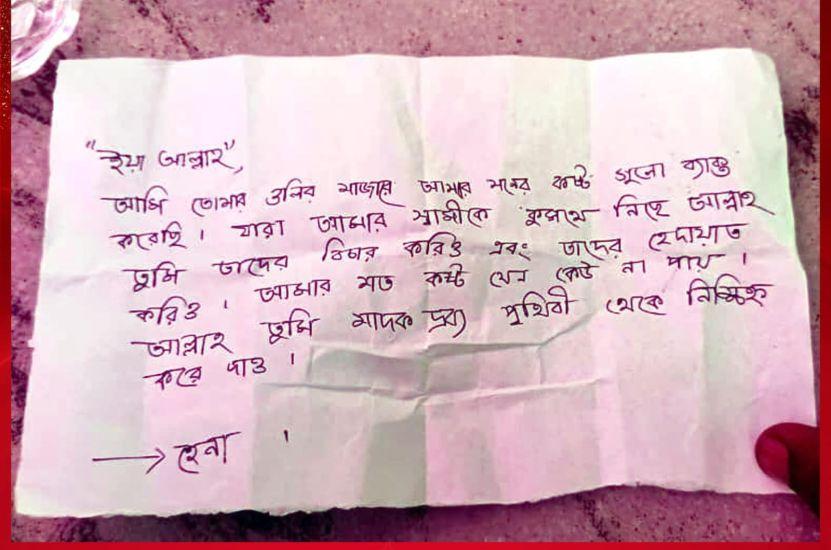 "ইয়া আল্লাহ",
আমি তোমার ওলির মাজারে আমার মনের কষ্ট গুলো ব্যাক্ত
করেছি। যারা আমার স্বামীকে কুপথে নিছে আল্লাহ
তুমি তাদের বিচার করিও এবং তাদের হেদায়াত
করিও। আমার মত কষ্ট যেন কেউ না পায়।
আল্লাহ তুমি মাদক দ্রব্য পৃথিবী থেকে নিশ্চিহ্ন
করে দাও।
→ হেনা।